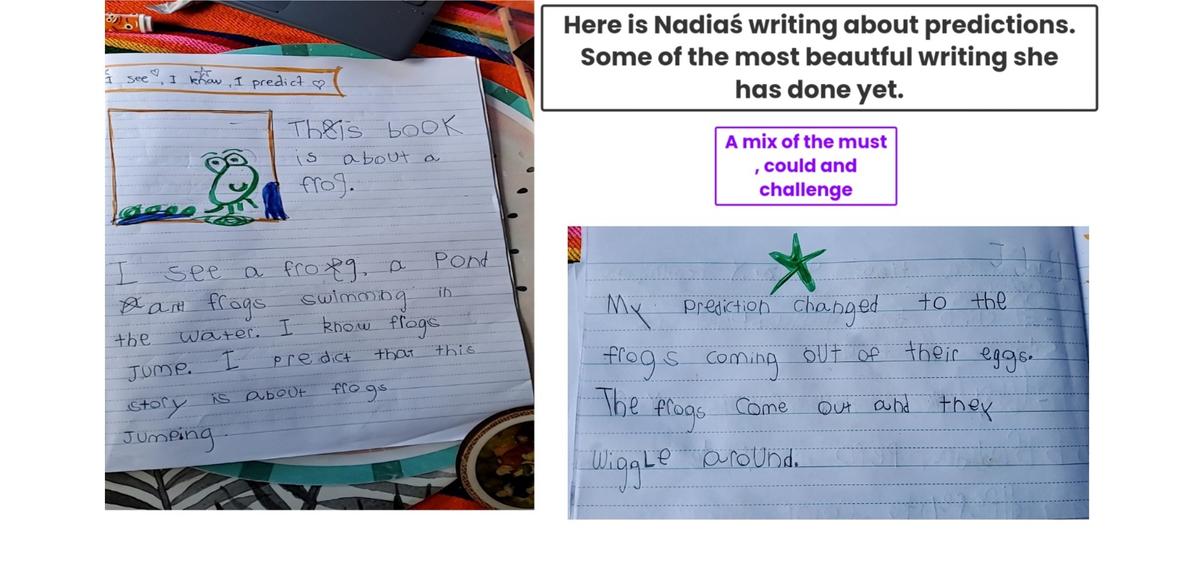 I see, I know, I predict
This book
is about a
frog.
I see a frog, a Pond
and frogs swimming in
the water. I know frogs
Jump. I predict that this
story is about frogs
Jumping.
Here is Nadiaś writing about predictions.
Some of the most beautful writing she
has done yet.
A mix of the must
, could and
challenge
My prediction changed to the
frogs coming out of their eggs.
The frogs come out and they
wiggle around.